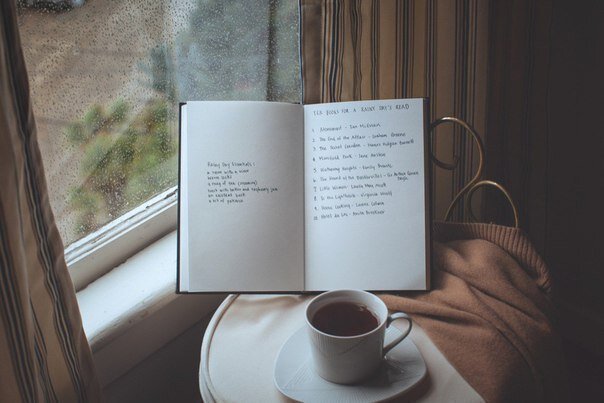 Rainy Day Essentials:
a room with a view
warm socks
a mug of tea (necessary)
toast with butter and raspberry jam
an excellent book
a bit of patience
TEN BOOKS FOR A RAINY DAY'S READ
1. Atonement - Ian McEwan
2. The End of the Affair - Graham Greene
3. The Secret Garden - Frances Hodgson Burnett
4. Mansfield Park - Jane Austen
5. Wuthering Heights - Emily Bronte
6. The Hound of the Baskervilles - Sir Arthur Conan
Doyle
7. Little Women - Louisa May Alcott
8. To the Lighthouse - Virginia Woolf
9. Home Cooking - Laurie Colwin
10. Hotel du Lac - Anita Brookner